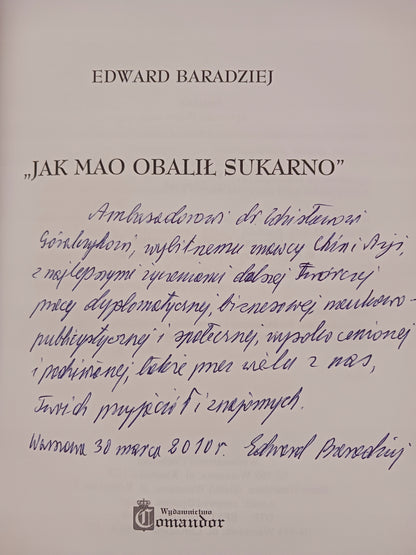 EDWARD BARADZIEJ
„JAK MAO OBALIŁ SUKARNO”
Ambasadorowi dr Zdzisławowi
Góralczykowi, wybitnemu znawcy Chin i Azji,
z najlepszymi życzeniami dalszej twórczej
pracy dyplomatycznej, biznesowej, naukowo-
publicystycznej i społecznej, wysoko cenionej
i podziwianej, także przez wielu z nas,
Twoich przyjaciół i znajomych.
Warszawa 30 marca 2010 r. Edward Baradziej
Wydawnictwo
Comandor